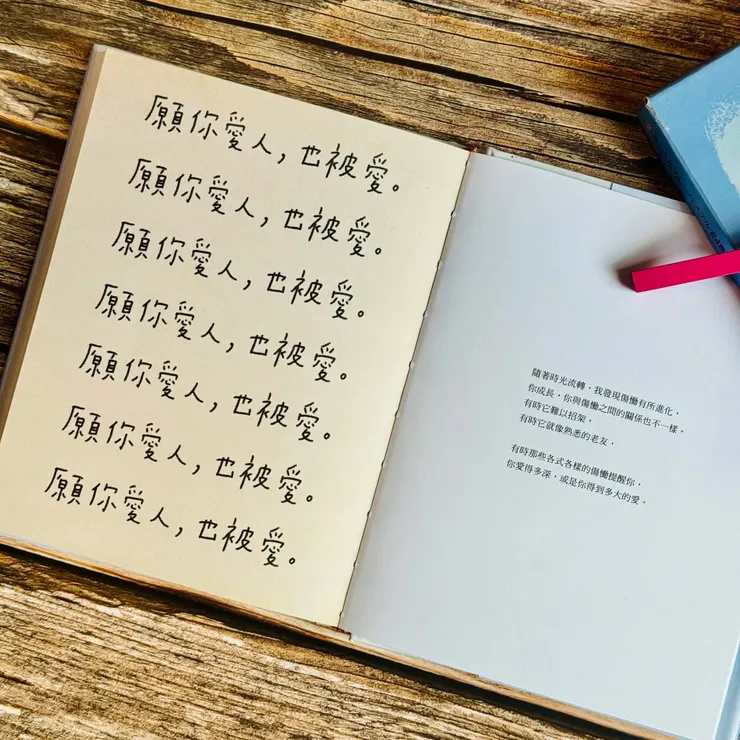 願你愛人，也被愛。
願你愛人，也被愛。
願你愛人，也被愛。
願你愛人，也被愛。
願你愛人，也被愛。
願你愛人，也被愛。
願你愛人，也被愛。
隨著時光流轉，我發現傷慟有所進化，
你成長，你與傷慟之間的關係也不一樣。
有時它難以招架，
有時它就像熟悉的老友，
有時那些各式各樣的傷慟提醒你，
你愛得多深，或是你得到多大的愛。